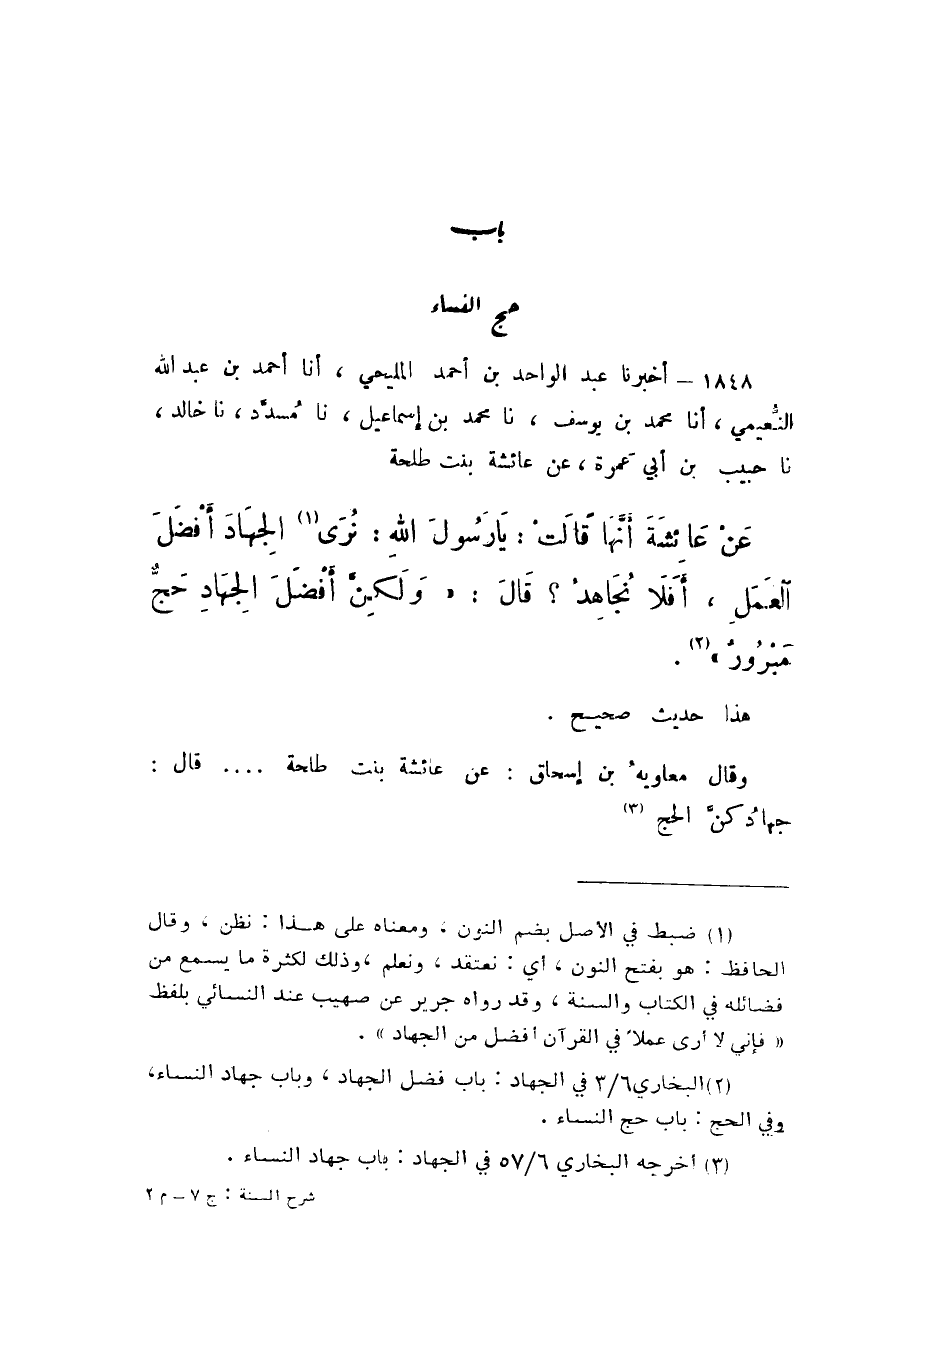 باب
حج النساء
١٨٤٨ – أخبرنا عبد الواحد بن أحمد المليحي ، أنا أحمد بن عبد الله
النُّعيمي ، أنا محمد بن يوسف ، نا محمد بن إسماعيل ، نا مُسدَّد ، نا خالد ،
نا حبيب بن أبي عَمرة ، عن عائشة بنت طلحة
عَنْ عَائِشَةَ أَنَّهَا قَالَتْ : يَارَسُولَ اللهِ : نُرَى(١) الجِهَادَ أَفْضَلَ
العَمَلِ ، أَفَلَا نُجَاهِدُ ؟ قَالَ : « وَلَكِنَّ أَفْضَلَ الجِهَادِ حَجٌّ
مَبْرُورٌ »(٢) .
هذا حديث صحيح .
وقال معاويةُ بن إسحاق : عن عائشة بنت طلحة .... قال :
جهادُكنَّ الحج (٣)
(١) ضبط في الأصل بضم النون ، ومعناه على هذا : نظن ، وقال
الحافظ : هو بفتح النون ، أي : نعتقد ، ونعلم ،وذلك لكثرة ما يسمع من
فضائله في الكتاب والسنة ، وقد رواه جرير عن صهيب عند النسائي بلفظ
« فإني لا أرى عملاً في القرآن أفضل من الجهاد » .
(٢)البخاري٣/٦ في الجهاد : باب فضل الجهاد ، وباب جهاد النساء،
وفي الحج : باب حج النساء .
(٣) أخرجه البخاري ٥٧/٦ في الجهاد : باب جهاد النساء .
شرح السنة : ج ٧ – م ٢